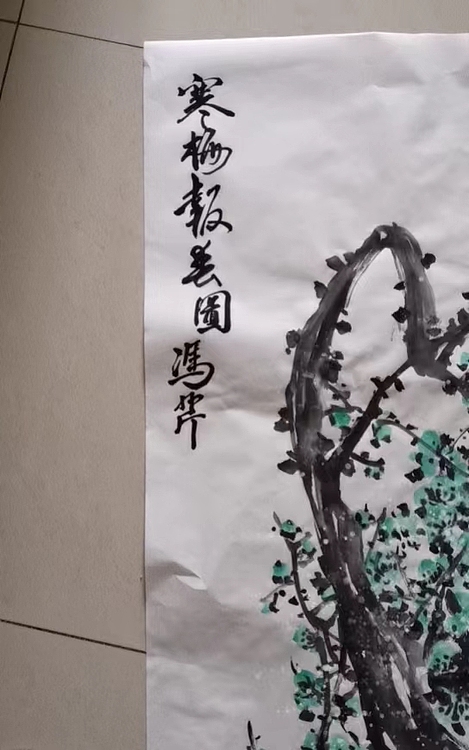 寒梅報春圖馮芹